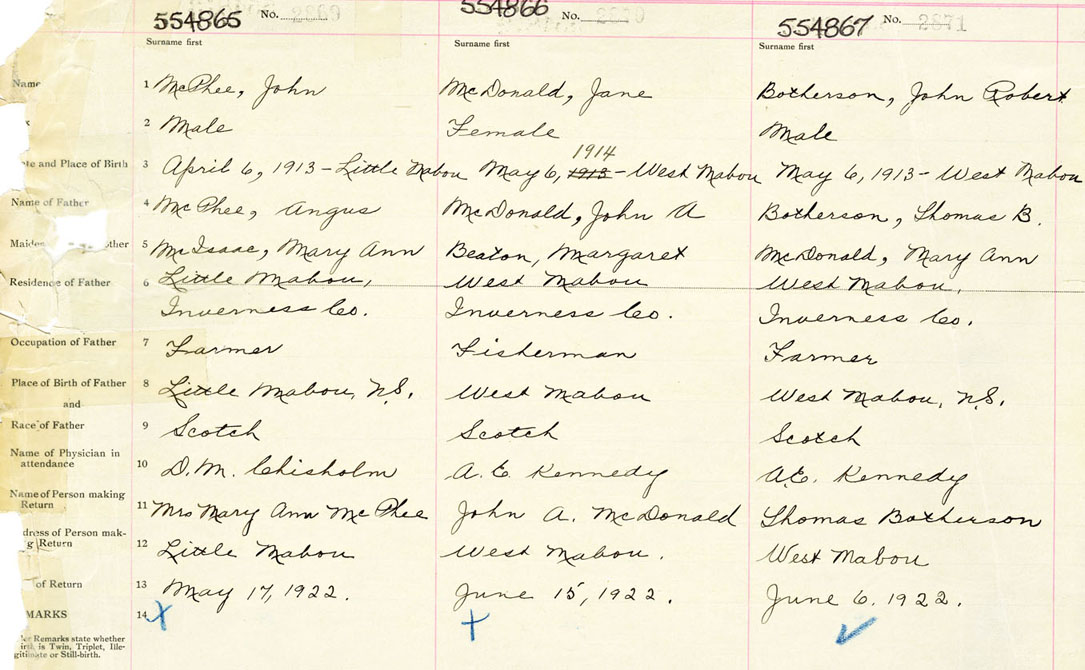 554865 No. 2869 554866 No. 554867 No. 2871
Surname first Surname first Surname first
Name 1 McPhee, John McDonald, Jane Botherson, John Robert
2 Male Female Male
1914
te and Place of Birth 3 April 6, 1913 - Little Mabou May 6, 1913 - West Mabou May 6, 1913 - West Mabou
Name of Father 4 McPhee, Angus McDonald, John A Botherson, Thomas B.
Maiden other 5 McIsaac, Mary Ann Beaton, Margaret McDonald, Mary Ann
Residence of Father 6 Little Mabou, West Mabou West Mabou,
Inverness Co. Inverness Co. Inverness Co.
Occupation of Father 7 Farmer Fisherman Farmer
Place of Birth of Father 8 Little Mabou, N.S. West Mabou West Mabou, N.S.
and
Race of Father 9 Scotch Scotch Scotch
Name of Physician in
attendance 10 D.M. Chisholm A.E. Kennedy A.E. Kennedy
Name of Person making
Return 11 Mrs Mary Ann McPhee John A. McDonald Thomas Botherson
dress of Person mak-
g Return 12 Little Mabou West Mabou. West Mabou
of Return 13 May 17, 1922. June 15, 1922. June 6. 1922.
MARKS 14
Remarks state whether
irth is Twin, Triplet, Ille-
gitimate or Still-birth.